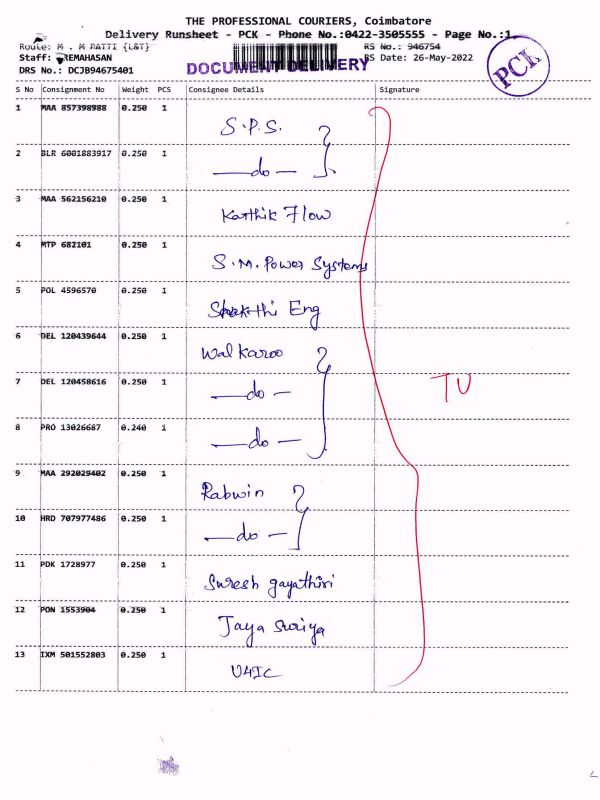 THE PROFESSIONAL COURIERS, Coimbatore
Delivery Runsheet - PCK - Phone No.:0422-3505555 - Page No.:1
Route: M . M PATTI {L&T}
RS No.: 946754
Staff: REMAHASAN
RS Date: 26-May-2022
DRS No.: DCJB94675401
DOCUMENT DELIVERY
PCK
S No Consignment No Weight PCS Consignee Details Signature
1 MAA 857398988 0.250 1 S.P.S.
2 BLR 6001883917 0.250 1 —do—
3 MAA 562156210 0.250 1 Karthik Flow
4 MTP 682101 0.250 1 S.M. Power Systems
5 POL 4596570 0.250 1 Shakthi Eng
6 DEL 120439644 0.250 1 Walkaroo
7 DEL 120458616 0.250 1 —do—
8 PRO 13026687 0.240 1 —do—
9 MAA 292029402 0.250 1 Rabwin
10 HRD 707977486 0.250 1 —do—
11 PDK 1728977 0.250 1 Suresh gayathiri
12 PON 1553904 0.250 1 Jaya Suriya
13 IXM 501552803 0.250 1 U4IC